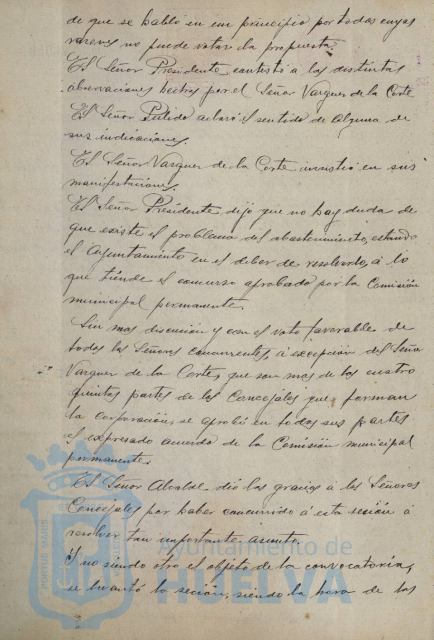 de que se habló en un principio por todas cuyas
razones no puede votar la propuesta.
El Señor Presidente contestó a las distintas
observaciones hechas por el Señor Vazquez de la Corte
El Señor Pulido aclaró el sentido de alguna de
sus indicaciones.
El Señor Vazquez de la Corte insistió en sus
manifestaciones.
El Señor Presidente dijo que no hay duda de
que existe el problema del abastecimiento, estando
el Ayuntamiento en el deber de resolverlo, á lo
que tiende el concurso aprobado por la Comisión
municipal permanente.
Sin mas discusion y con el voto favorable de
todos los Señores concurrentes, á excepción del Señor
Vazquez de la Corte, que son mas de las cuatro
quintas partes de los Concejales que forman
la corporación, se aprobó en todas sus partes
el expresado acuerdo de la Comisión municipal
permanente.
El Señor Alcalde dió las gracias á los Señores
Concejales por haber concurrido á esta sesión á
resolver tan importante asunto.
Y no siendo otro el objeto de la convocatoria,
se levantó la sesión, siendo la hora de las
PORTUS MARIS
Ayuntamiento de
HUELVA